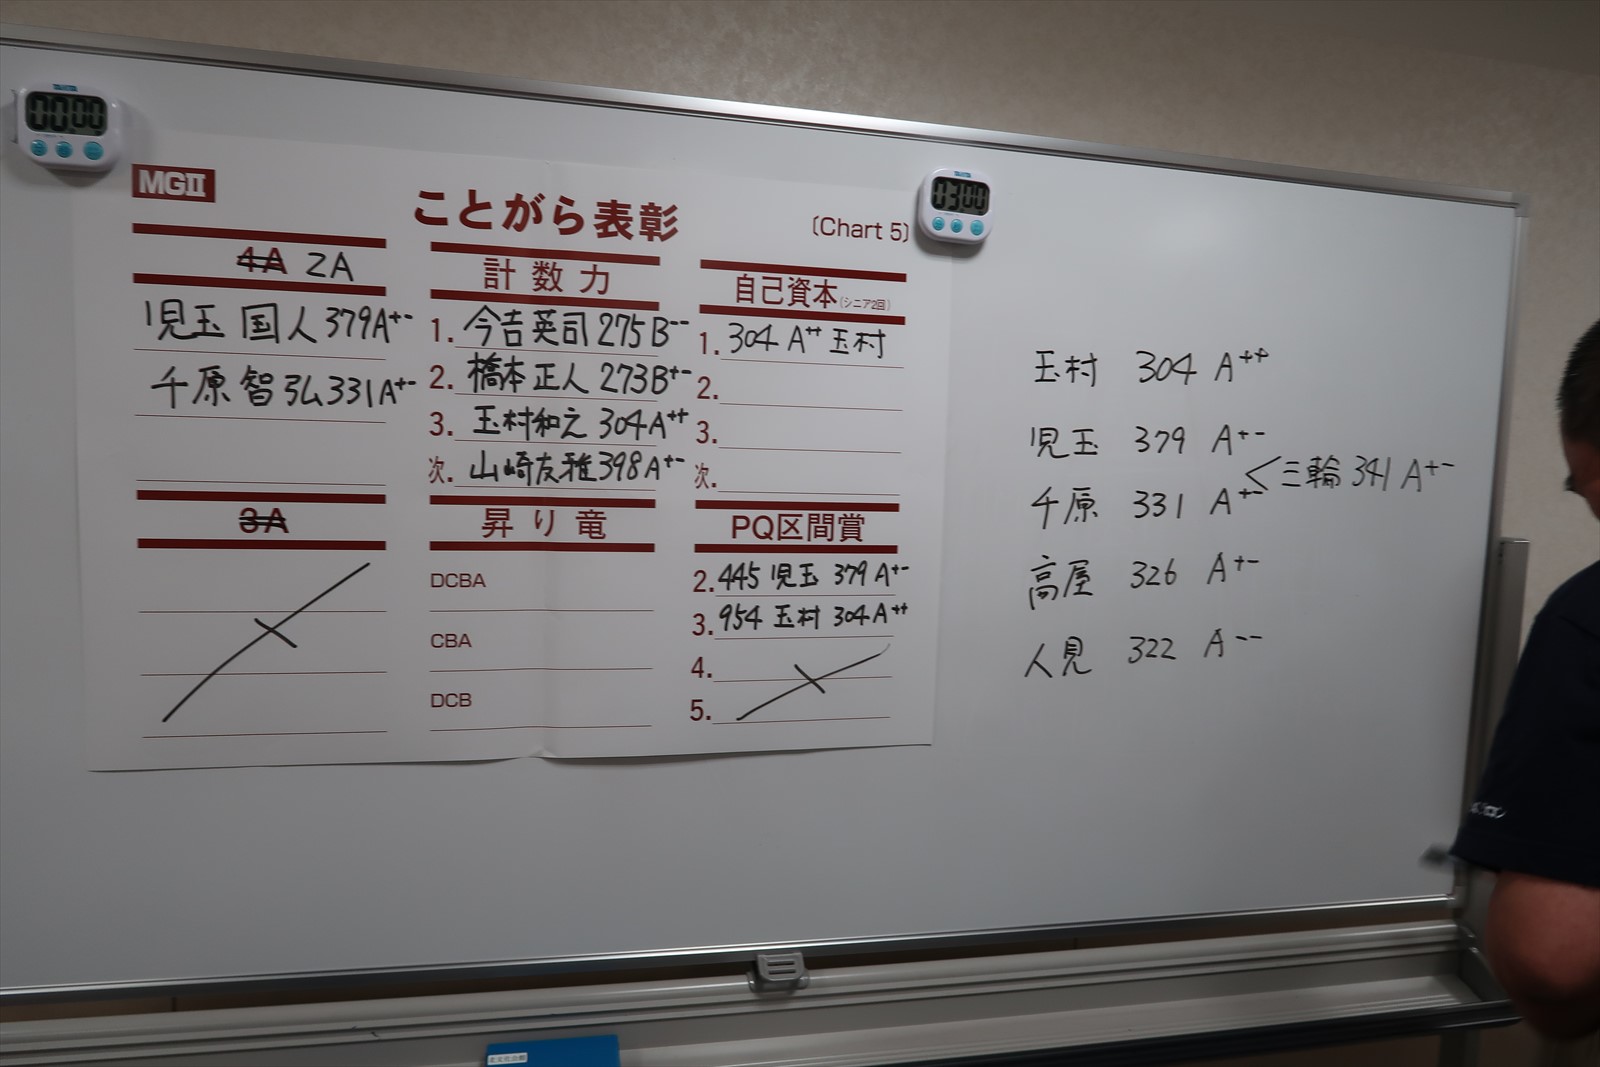 00:00
03:00
MGⅡ
ことがら表彰
(Chart 5)
4A 2A
児玉 国人 379A+-
千原 智弘 331A+-
計数力
1. 今吉英司 275B--
2. 橋本正人 273B+-
3. 玉村和之 304A++
次. 山崎友雅 398A+-
自己資本(シニア2回)
1. 304 A++ 玉村
2.
3.
次.
3A
昇り竜
DCBA
CBA
DCB
PQ区間賞
2. 445 児玉 379 A+-
3. 954 玉村 304A++
4.
5.
玉村 304 A++
児玉 379 A+-
三輪 341 A+-
千原 331 A+-
高屋 326 A+-
人見 322 A--